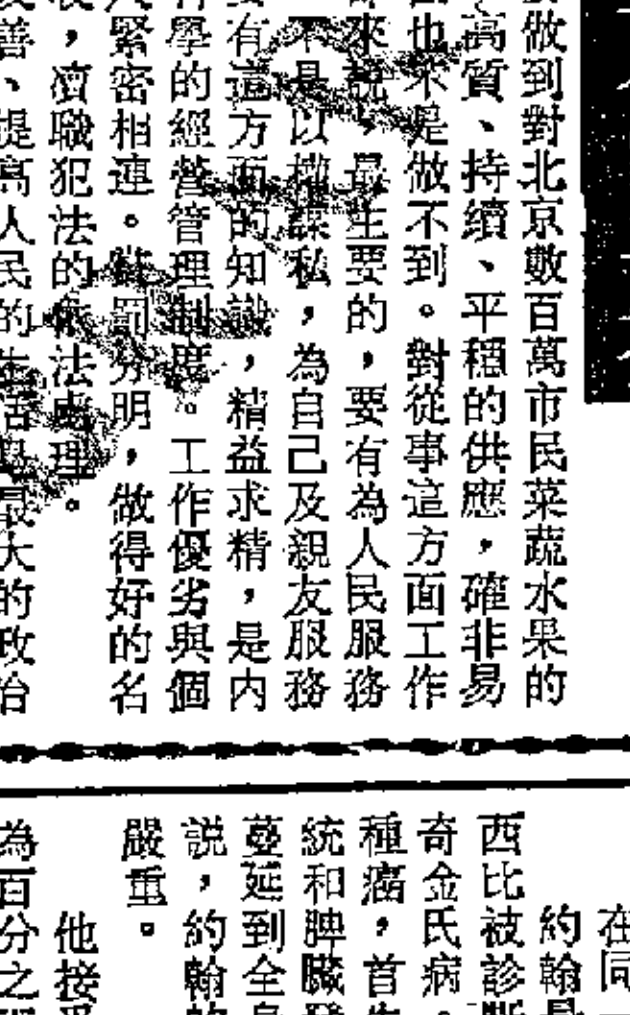 做到對北京數百萬市民菜蔬水果的
高質、持續、平穩的供應，確非易
也不是做不到。對從事這方面工作
來說，最主要的，要有為人民服務
不是以權謀私，為自己及親友服務
有這方面的知識，精益求精，是内
學的經營管理制度。工作優劣與個
緊密相連。獎罰分明，做得好的名
，瀆職犯法的依法處理。
善、提高人民的生活是最大的政治
在同
約翰是
西比被診斷
奇金氏病。
種癌，首先
統和脾臟發
蔓延到全身
説，約翰的
嚴重。
他接受
為百分之